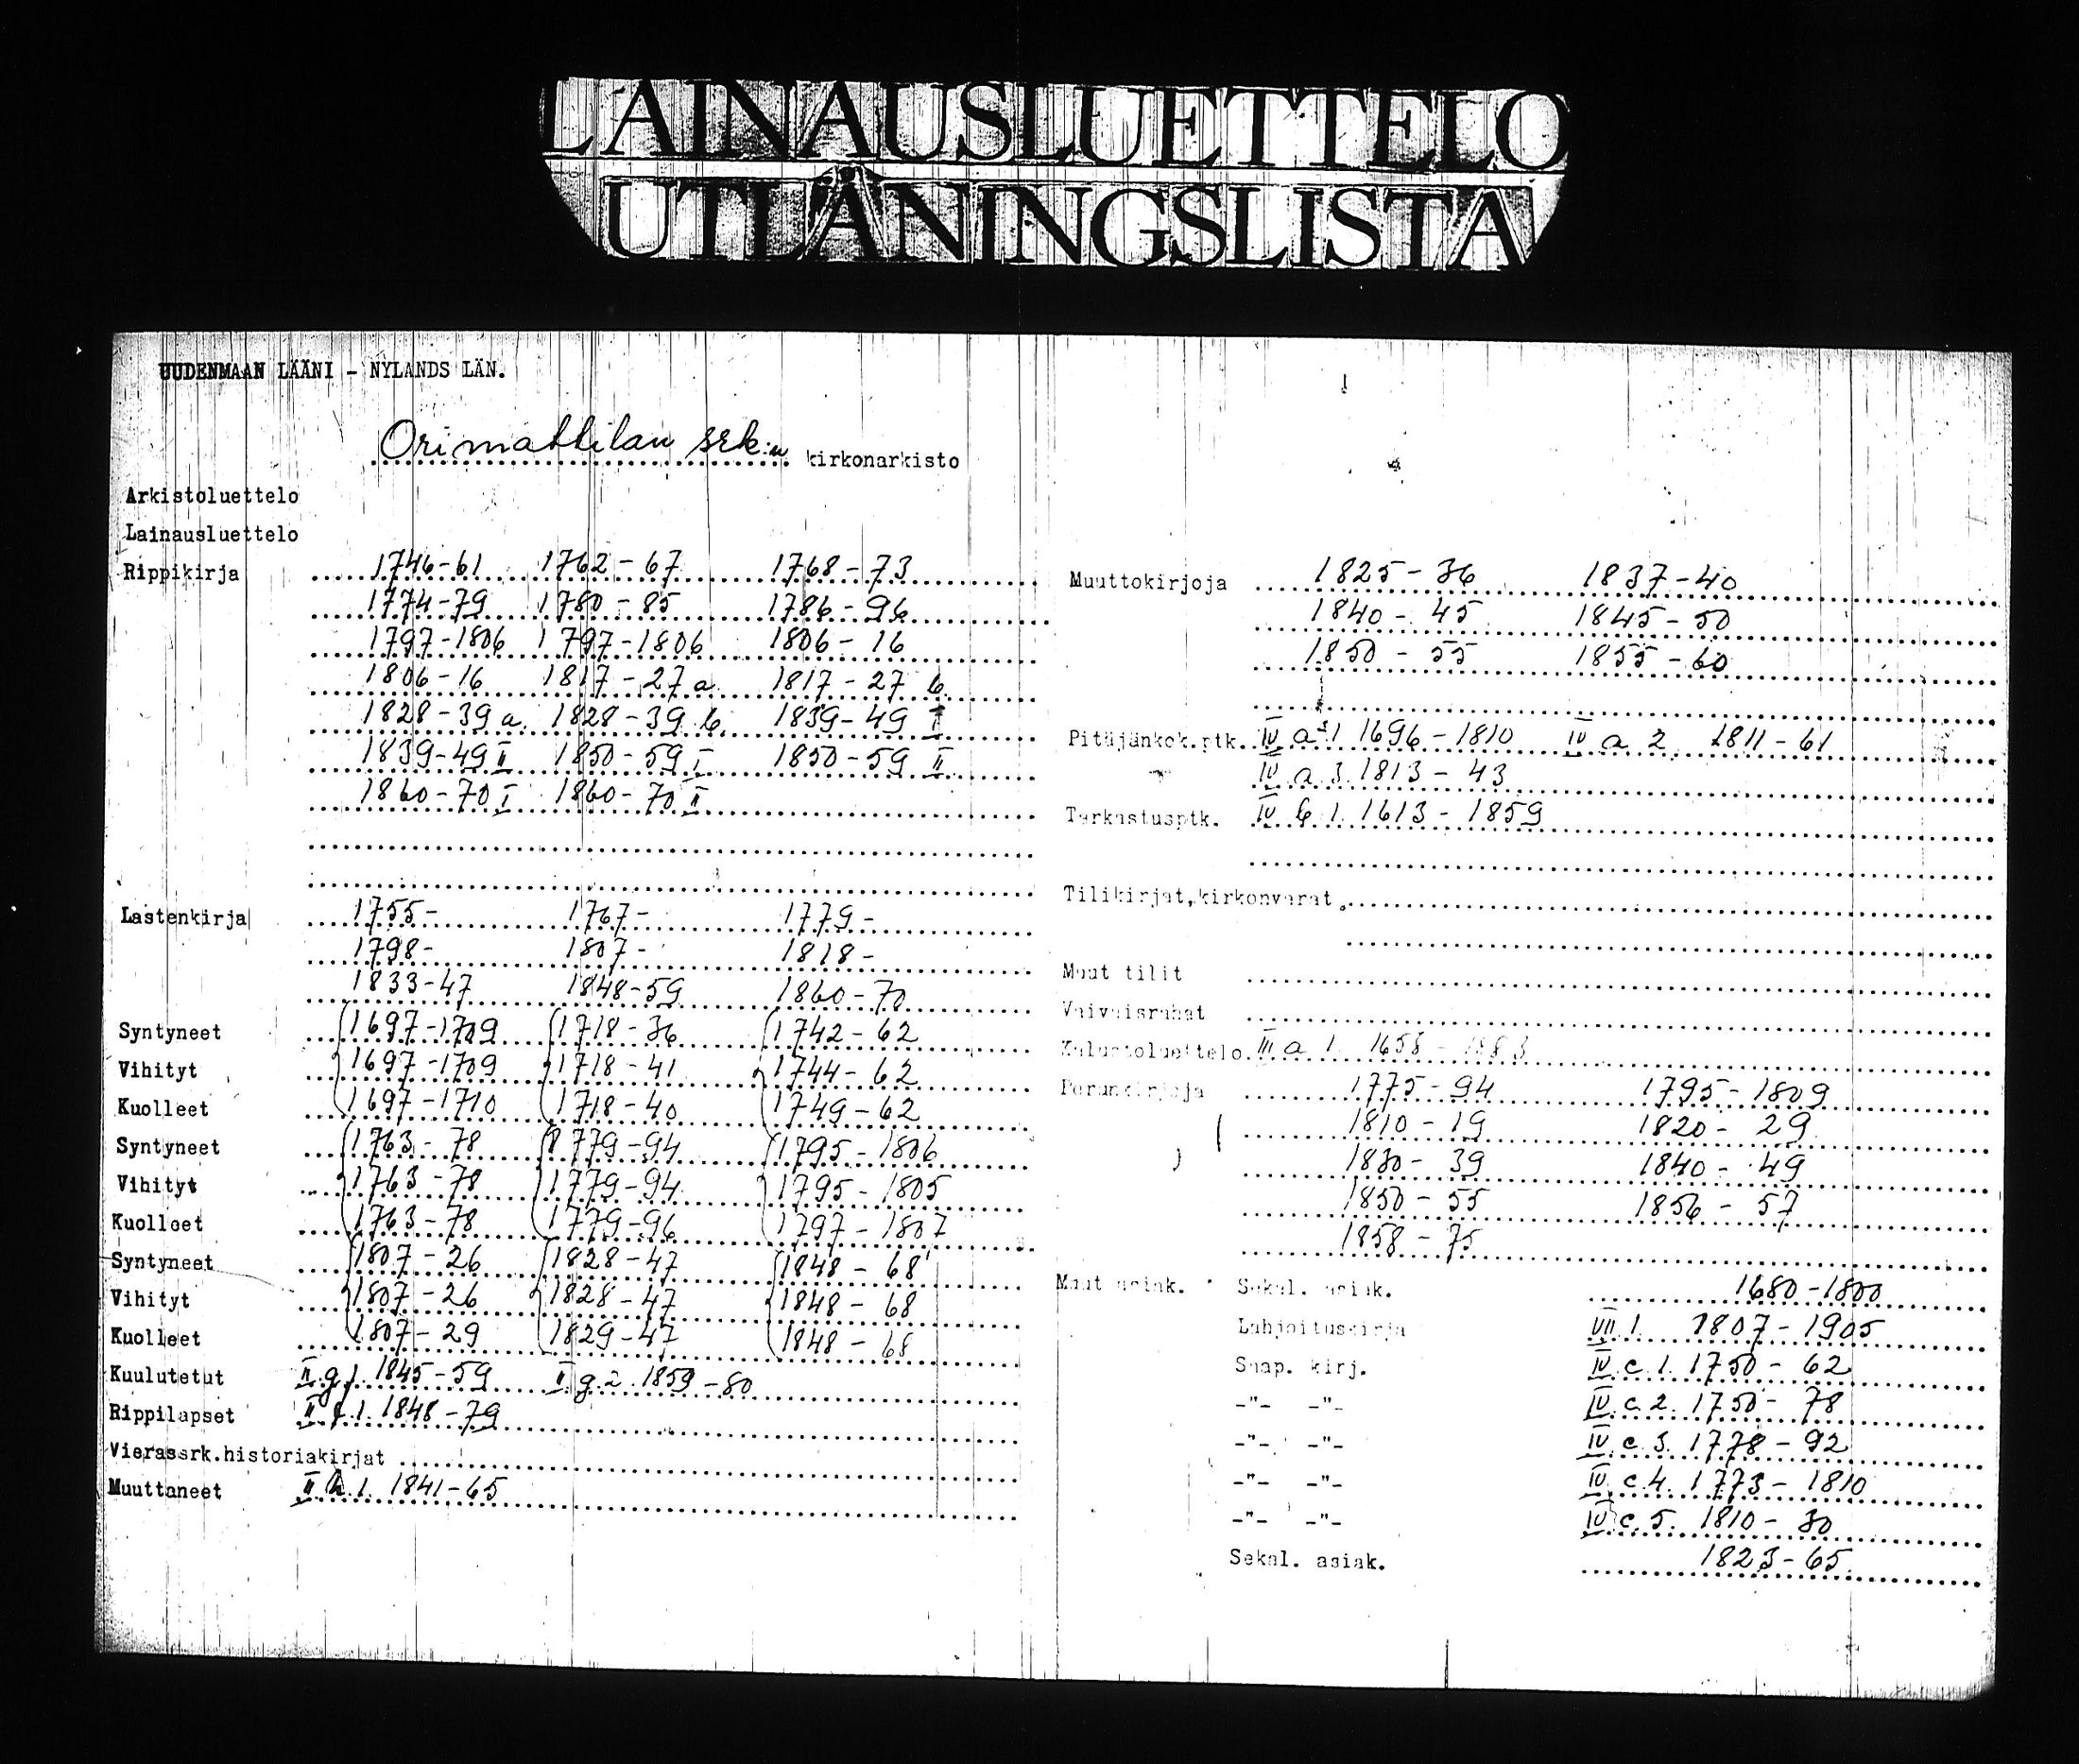 LAINAUSLUETTELO
UTLÅNINGSLISTA
UUDENMAAN LÄÄNI - NYLANDS LÄN.
Orimattilan srk:n kirkonarkisto
Arkistoluettelo
Lainausluettelo
Rippikirja 1746-61 1762-67 1768-73
1774-79 1780-85 1786-96
1797-1806 1797-1806 1806-16
1806-16 1817-27 a 1817-27 b
1828-39 a 1828-39 b 1839-49 I
1839-49 II 1850-59 I 1850-59 II
1860-70 I 1860-70 II
Lastenkirja 1755- 1767- 1779-
1798- 1807- 1818-
1833-47 1848-59 1860-70
Syntyneet 1697-1709 1718-36 1742-62
Vihityt 1697-1709 1718-41 1744-62
Kuolleet 1697-1710 1718-40 1749-62
Syntyneet 1763-78 1779-94 1795-1806
Vihityt 1763-78 1779-94 1795-1805
Kuolleet 1763-78 1779-96 1797-1807
Syntyneet 1807-26 1828-47 1848-68
Vihityt 1807-26 1828-47 1848-68
Kuolleet 1807-29 1829-47 1848-68
Kuulutetut II g 1. 1845-59 II g. 2. 1859-80
Rippilapset II f. 1. 1848-79
Vierassrk.historiakirjat
Muuttaneet II h 1. 1841-65
Muuttokirjoja 1825-36 1837-40
1840-45 1845-50
1850-55 1855-60
Pitäjänkok.ptk. IV a 1 1696-1810 IV a 2 1811-61
IV a 3. 1813-43
Tarkastusptk. IV b 1. 1613-1859
Tilikirjat, kirkonvarat
Muut tilit
Vaivaisrahat
Kalustoluettelo III a 1. 1658-1883
Perunkirjoja 1775-94 1795-1809
1810-19 1820-29
1830-39 1840-49
1850-55 1856-57
1858-75
Muut asiak. Sekal. asiak. 1680-1800
Lahjoituskirja VII 1. 1807-1905
Saap. kirj. IV c. 1. 1750-62
-"- -"- IV c. 2. 1750-78
-"- -"- IV c. 3. 1778-92
-"- -"- IV c. 4. 1773-1810
-"- -"- IV c. 5. 1810-30
Sekal. asiak. 1823-65